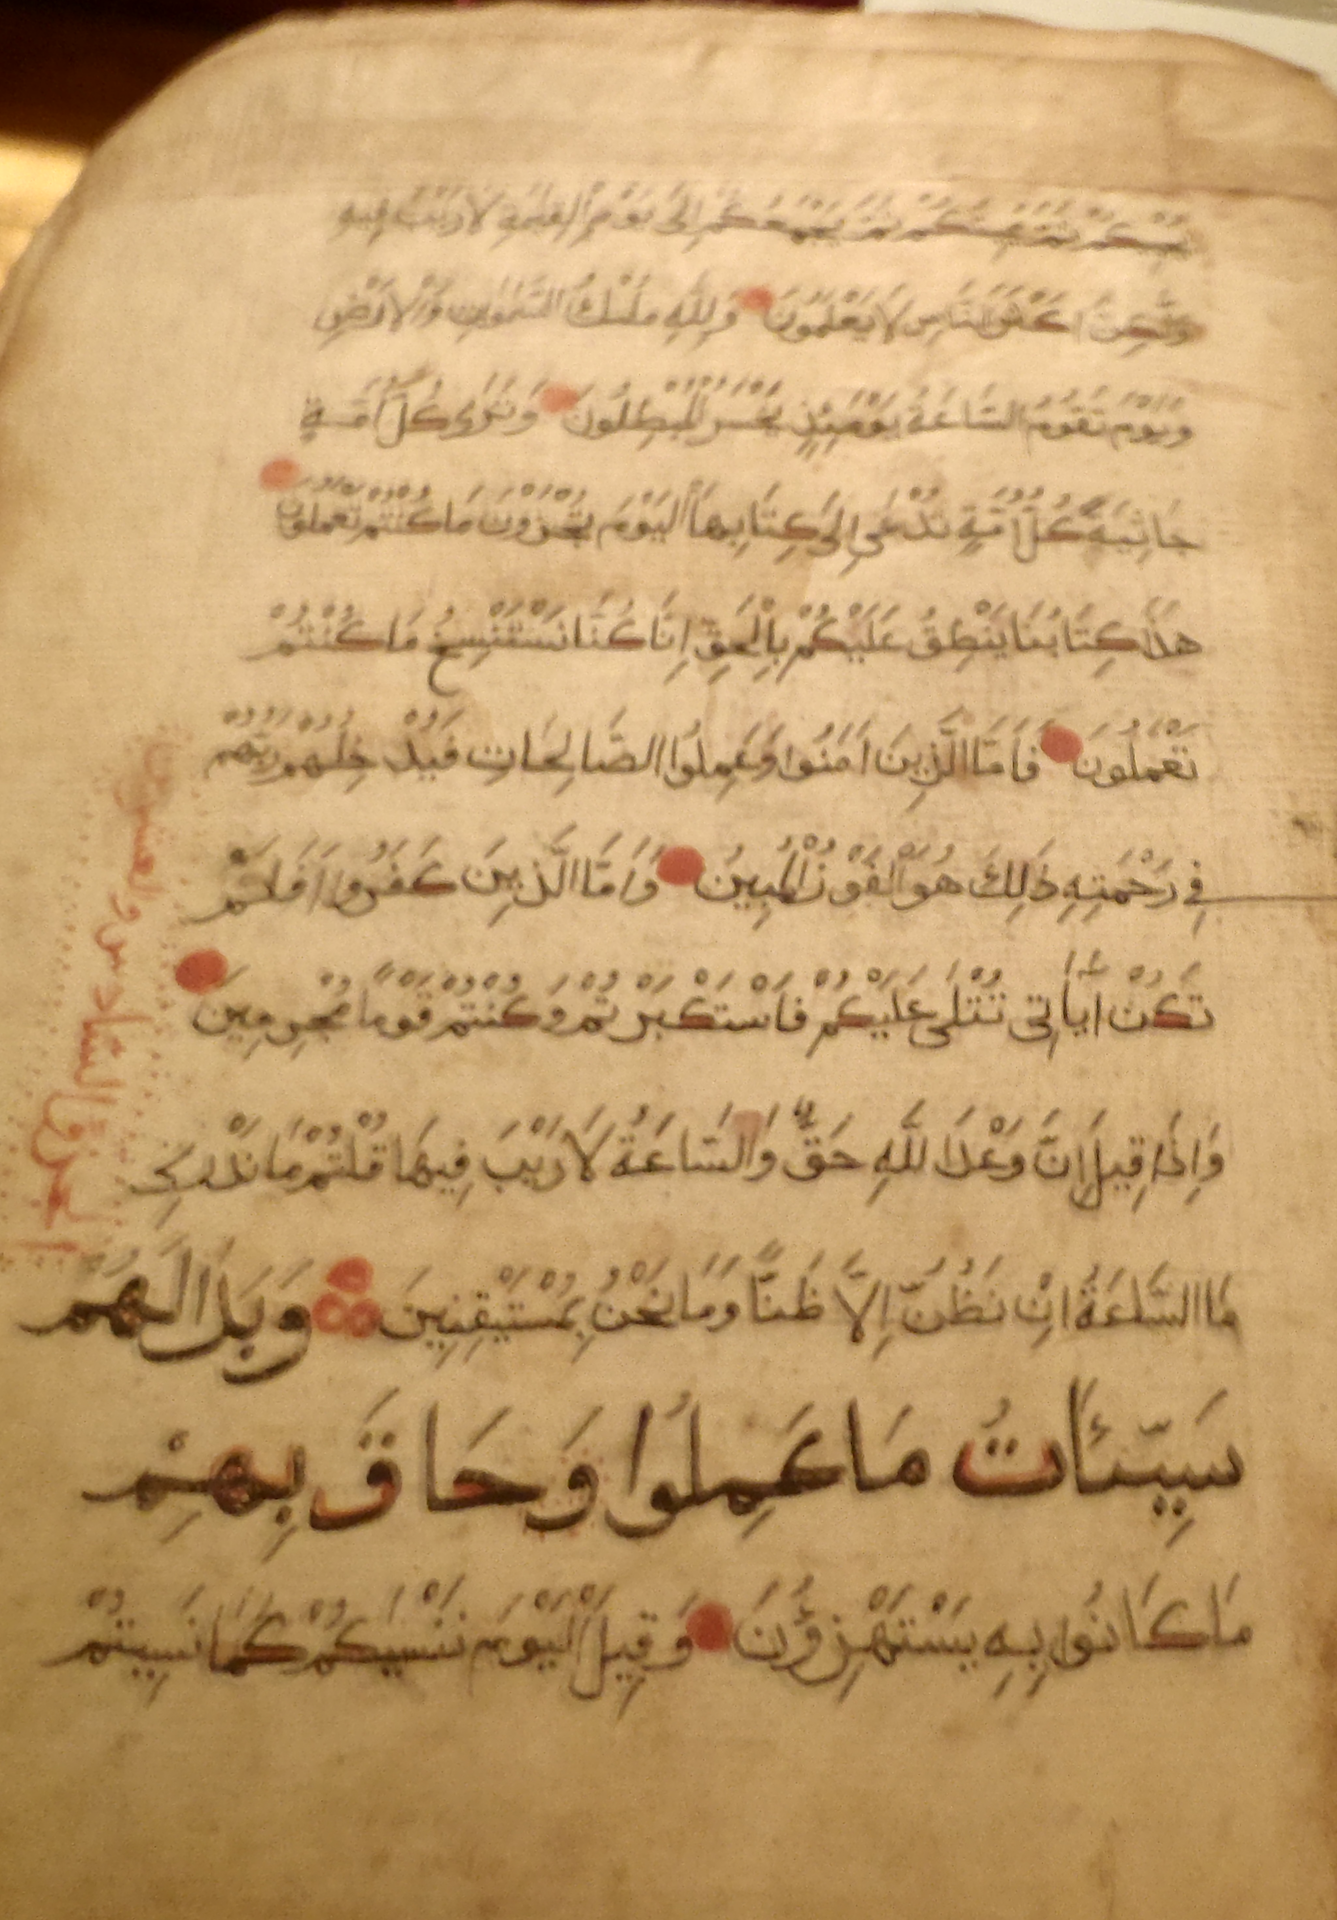 يُحْيِيكُمْ ثُمَّ يُمِيتُكُمْ ثُمَّ يَجْمَعُكُمْ إِلَى يَوْمِ الْقِيمَةِ لَا رَيْبَ فِيهِ
وَلَكِنَّ أَكْثَرَ النَّاسِ لَا يَعْلَمُونَ وَلِلَّهِ مُلْكُ السَّمَوَاتِ وَالْأَرْضِ
وَيَوْمَ تَقُومُ السَّاعَةُ يَوْمَئِذٍ يَخْسَرُ الْمُبْطِلُونَ وَتَرَى كُلَّ أُمَّةٍ
جَاثِيَةً كُلُّ أُمَّةٍ تُدْعَى إِلَى كِتَابِهَا الْيَوْمَ تُجْزَوْنَ مَا كُنْتُمْ تَعْمَلُونَ
هَذَا كِتَابُنَا يَنْطِقُ عَلَيْكُمْ بِالْحَقِّ إِنَّا كُنَّا نَسْتَنْسِخُ مَا كُنْتُمْ
تَعْمَلُونَ فَأَمَّا الَّذِينَ آمَنُوا وَعَمِلُوا الصَّالِحَاتِ فَيُدْخِلُهُمْ رَبُّهُمْ
فِي رَحْمَتِهِ ذَلِكَ هُوَ الْفَوْزُ الْمُبِينُ وَأَمَّا الَّذِينَ كَفَرُوا أَفَلَمْ
تَكُنْ آيَاتِي تُتْلَى عَلَيْكُمْ فَاسْتَكْبَرْتُمْ وَكُنْتُمْ قَوْمًا مُجْرِمِينَ
وَإِذَا قِيلَ إِنَّ وَعْدَ اللَّهِ حَقٌّ وَالسَّاعَةُ لَا رَيْبَ فِيهَا قُلْتُمْ مَا نَدْرِي
مَا السَّاعَةُ إِنْ نَظُنُّ إِلَّا ظَنًّا وَمَا نَحْنُ بِمُسْتَيْقِنِينَ وَبَدَا لَهُمْ
سَيِّئَاتُ مَا عَمِلُوا وَحَاقَ بِهِمْ
مَا كَانُوا بِهِ يَسْتَهْزِؤُنَ وَقِيلَ الْيَوْمَ نَنْسَيكُمْ كَمَا نَسِيتُمْ
الجزؤ السادس والعشرون